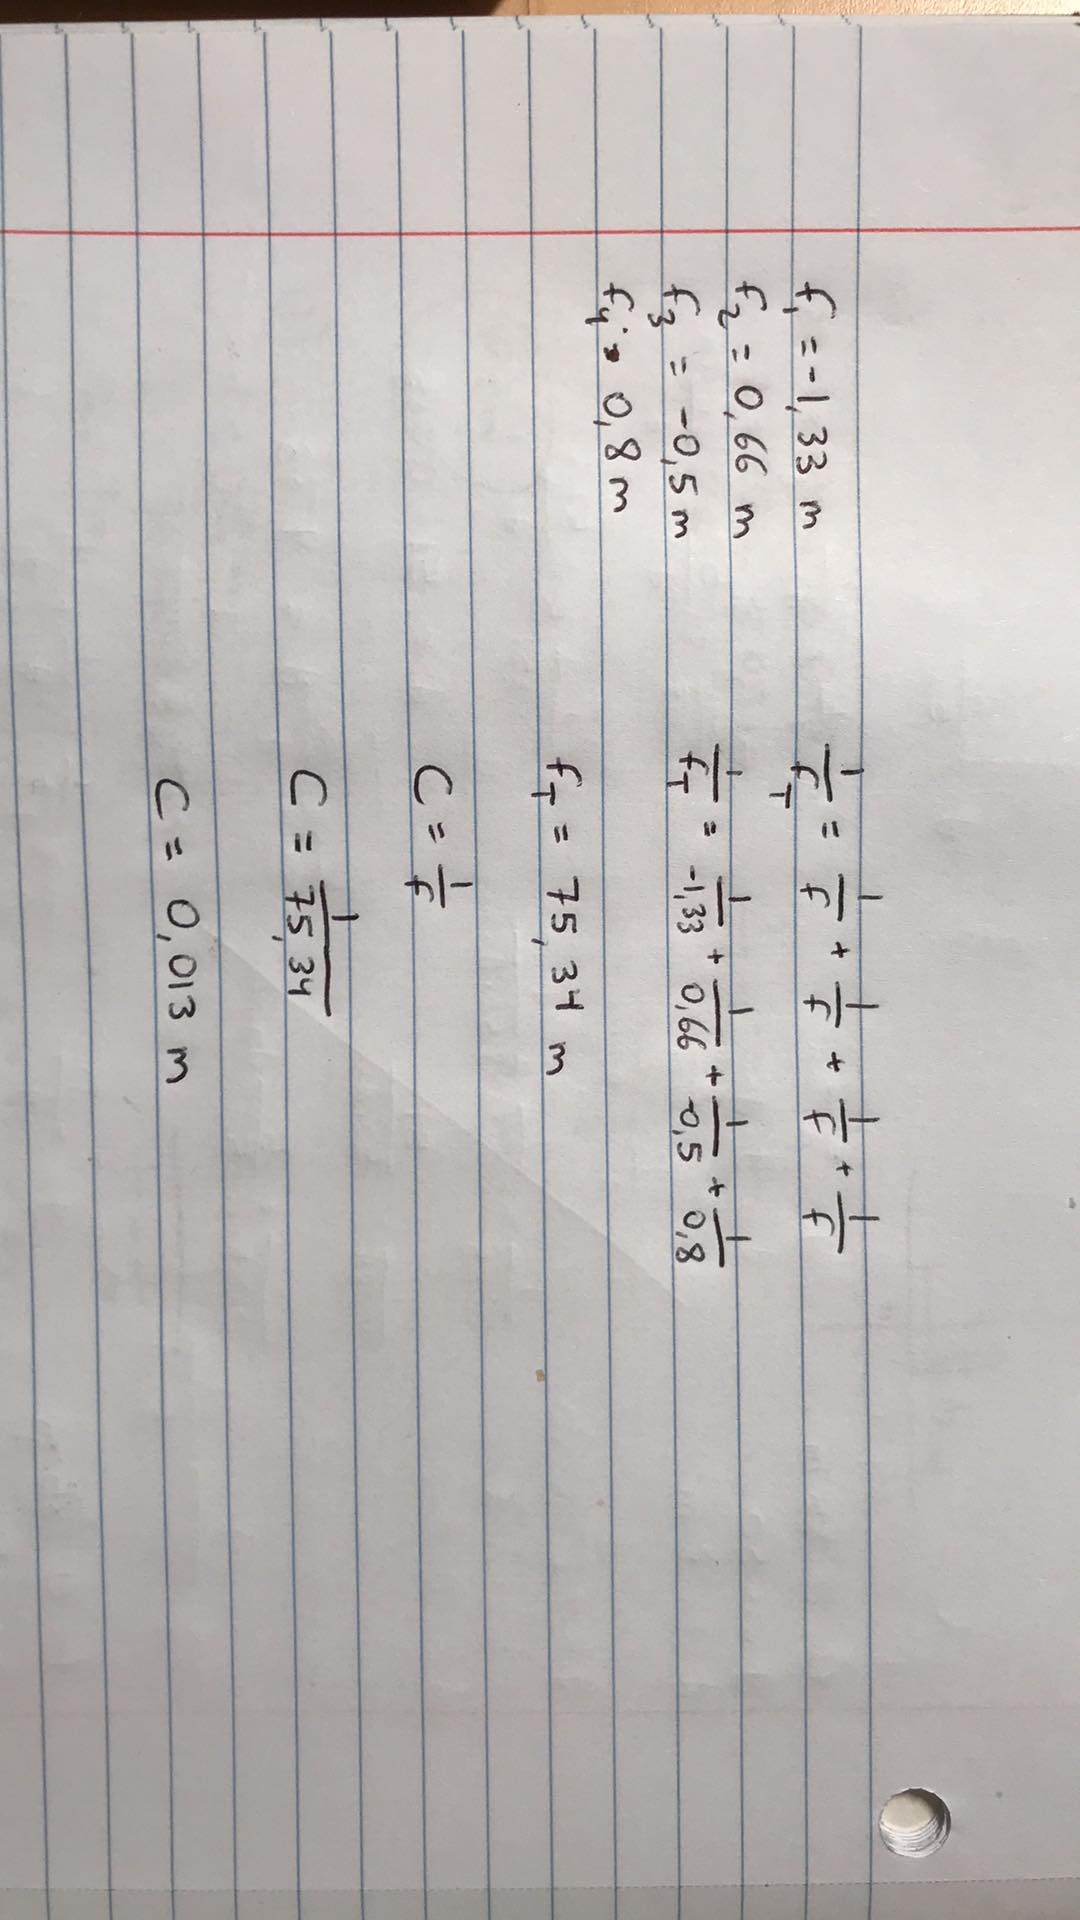 f₁ = -1,33 m
f₂ = 0,66 m
f₃ = -0,5 m
f₄ = 0,8 m
1/f_T = 1/f + 1/f + 1/f + 1/f
1/f_T = 1/-1,33 + 1/0,66 + 1/-0,5 + 1/0,8
f_T = 75,34 m
C = 1/f
C = 1/75,34
C = 0,013 m